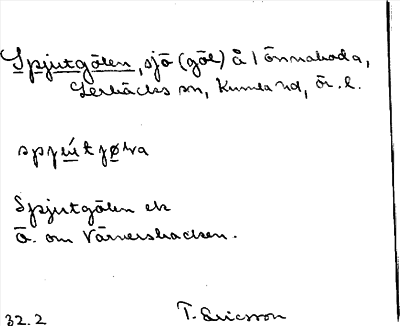 Spjutgölen, sjö (göl) å Lönnaboda,
Lerbäcks sn, Kumla hd, Ör. l.
Spjutgölen ek
Ö. om Värnersbacken.
32.2 T. Ericsson